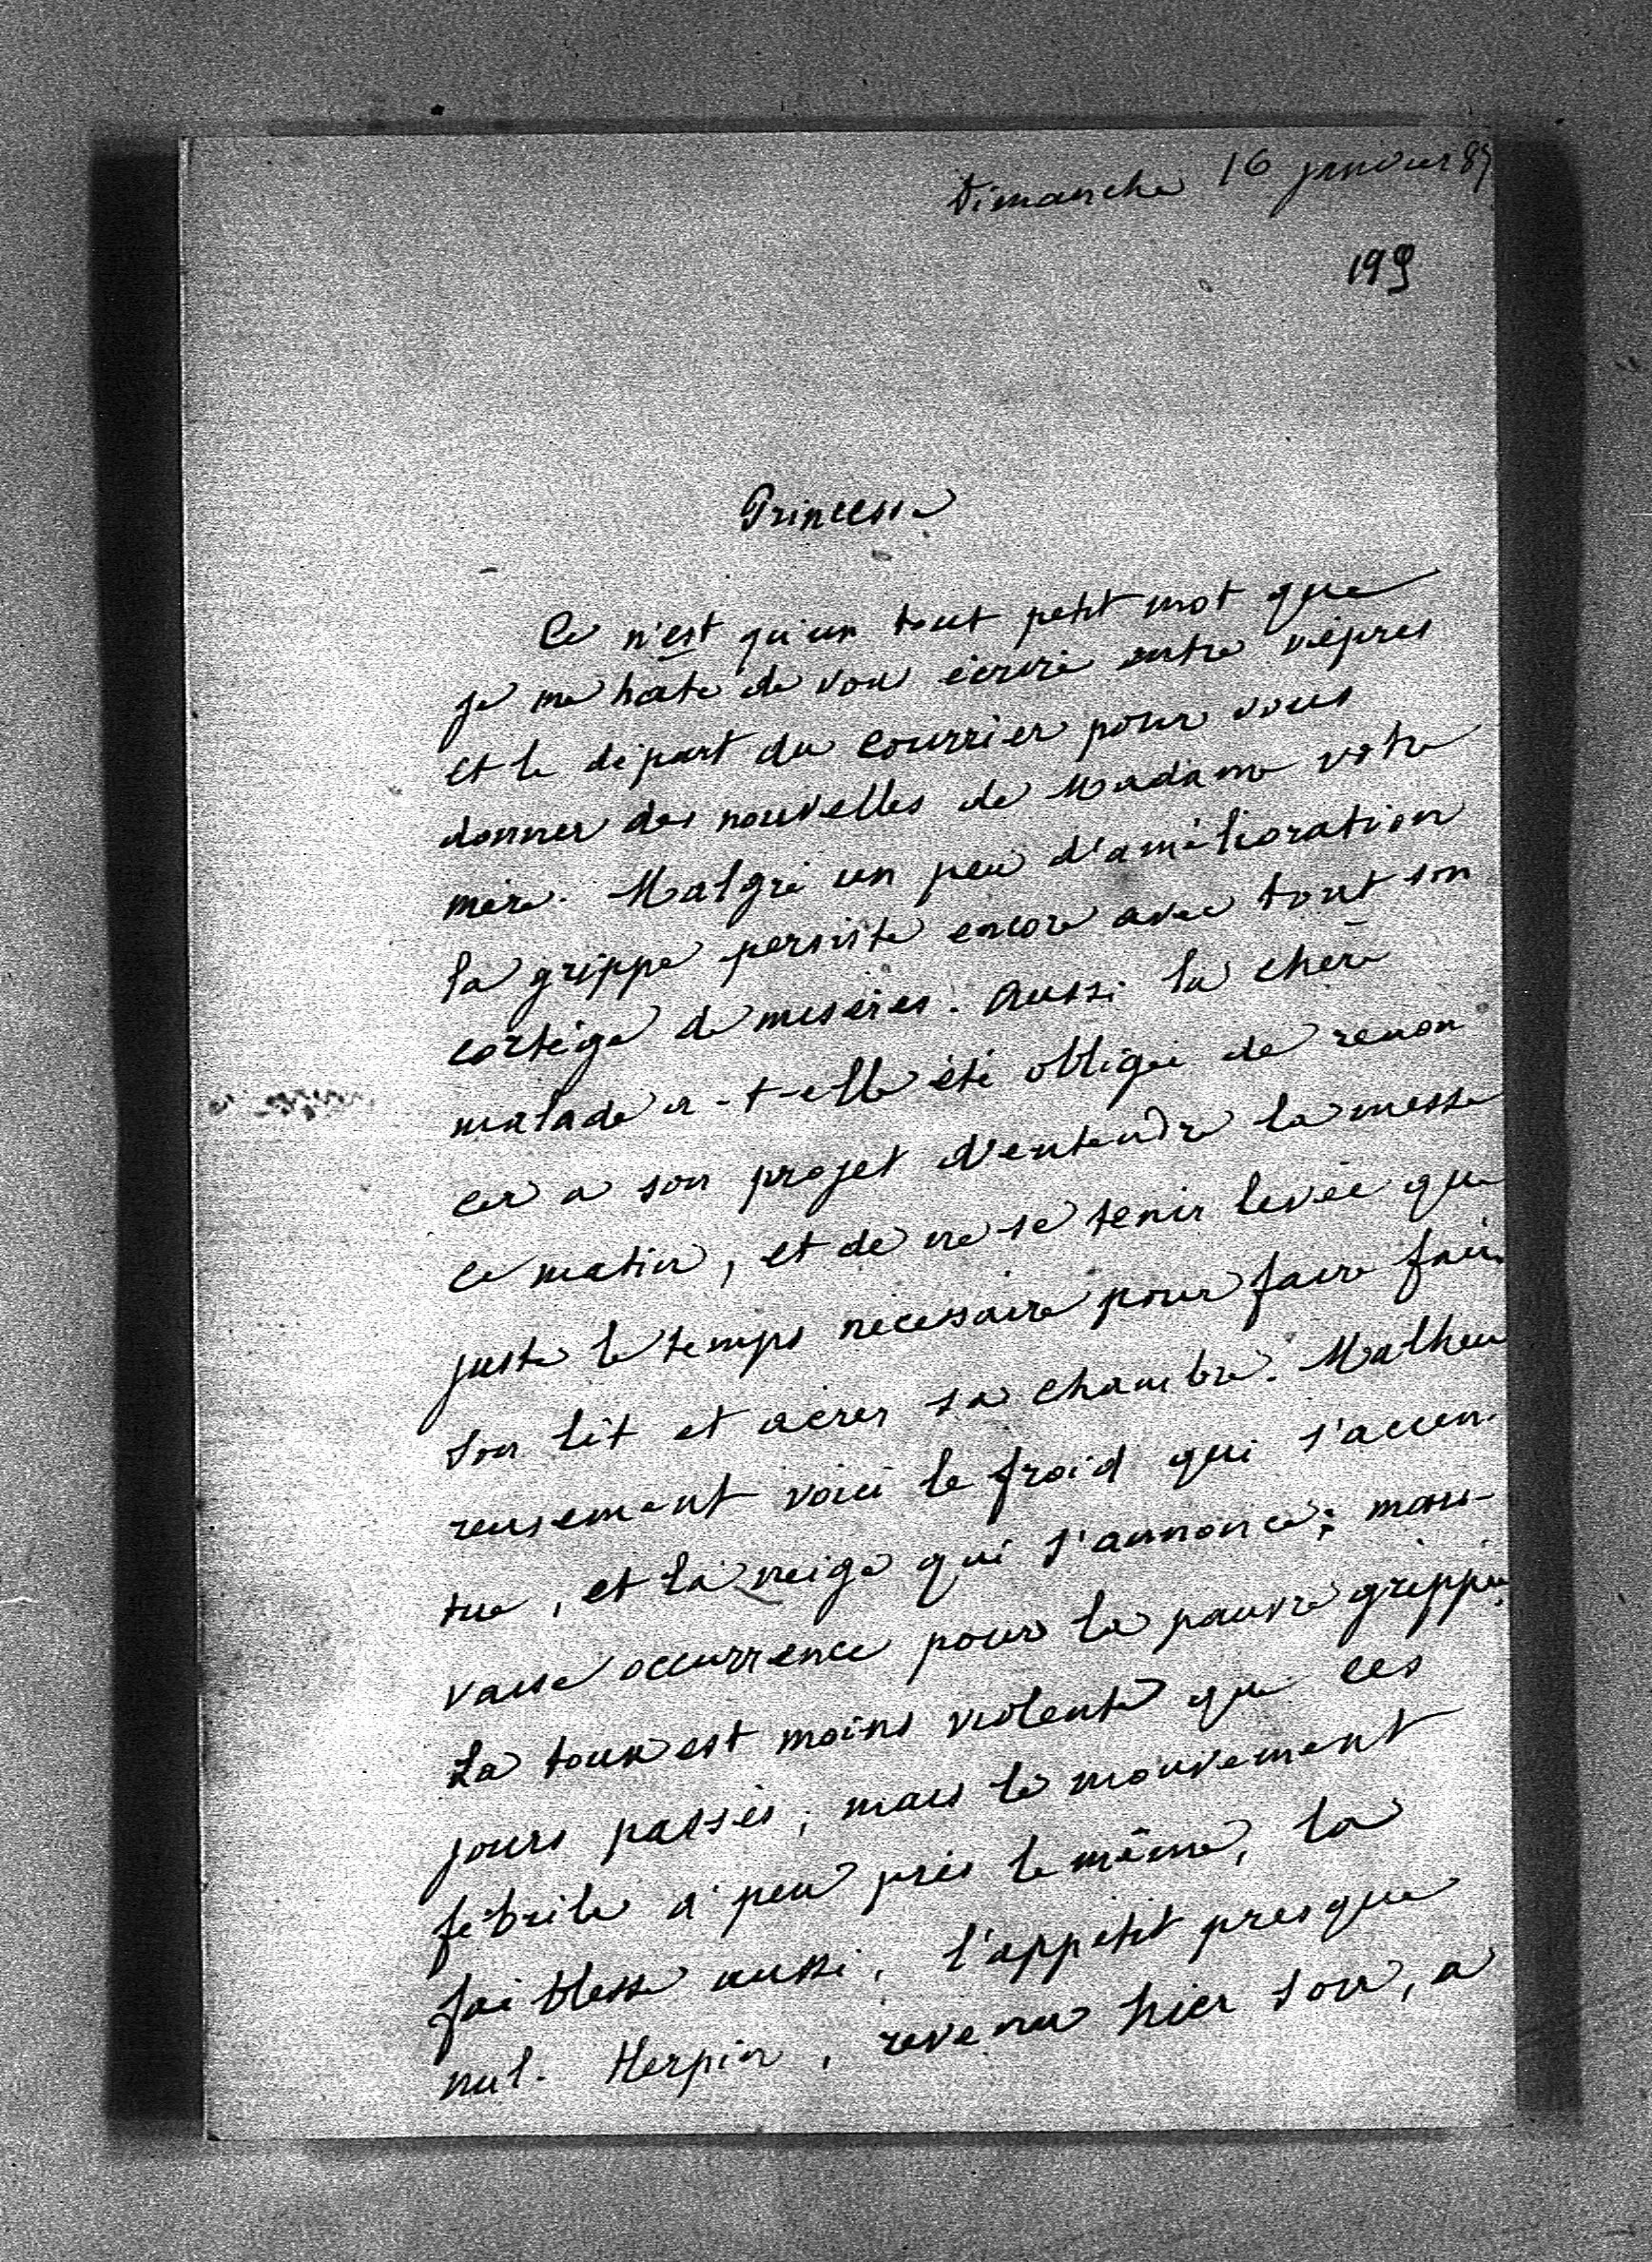 Dimanche 16 janvier 87
199
Princesse
Ce n'est qu'un tout petit mot que
je me hate de vous écrire entre vêpres
et le départ du courrier pour vous
donner des nouvelles de Madame votre
mère. Malgré un peu d'amélioration
la grippe persiste encore avec tout son
cortège de misères. Aussi la chère
malade a-t-elle été obligée de renon
cer a son projet d'entendre la messe
ce matin, et de ne se tenir levée que
juste le temps nécessaire pour faire faire
son lit et aérer sa chambre. Malheu
reusement voici le froid qui s'accen-
tue, et la neige qui s'annonce; mau-
vaise occurrence pour la pauvre grippée.
La toux est moins violente que ces
jours passés, mais le mouvement
fébrile à peu près le même, la
faiblesse aussi, l'appétit presque
nul. Herpin, revenu hier soir, a